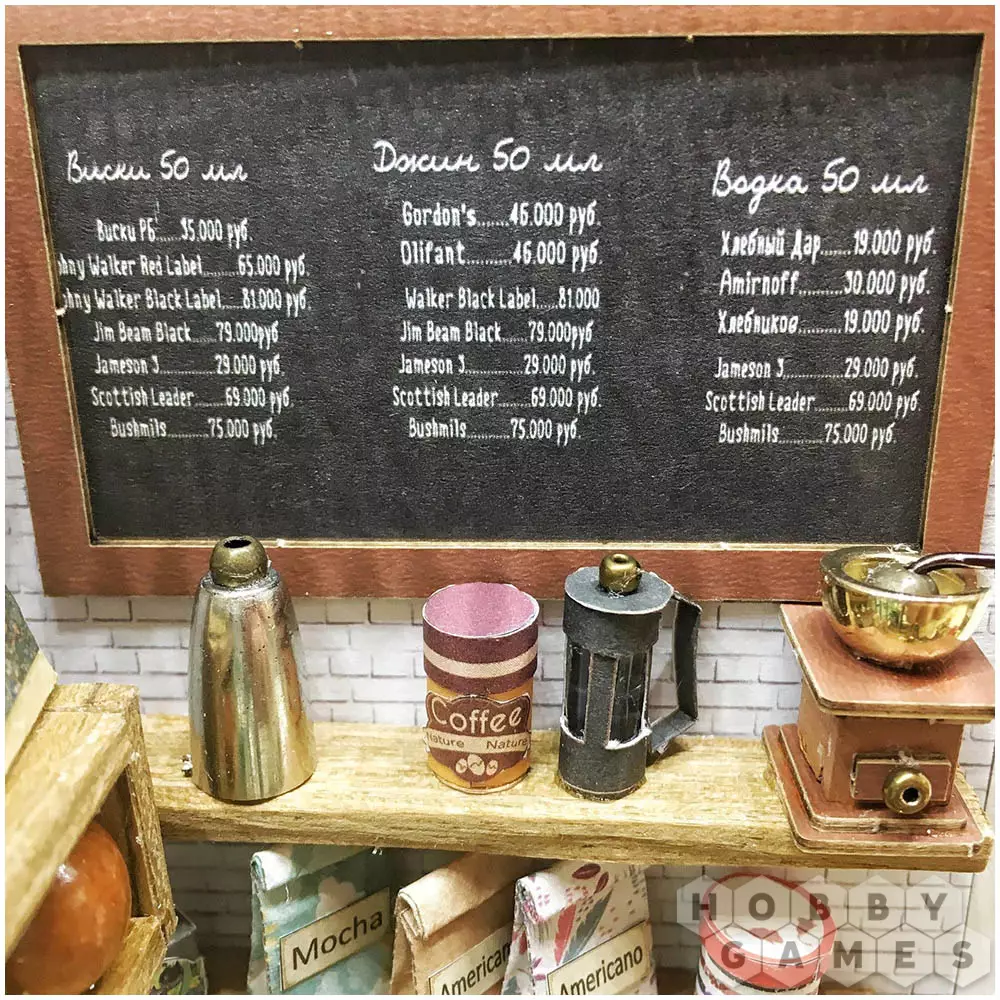 Виски 50 мл
Виски РБ......35.000 руб.
hny Walker Red Label.........65.000 руб.
ohny Walker Black Label.....81.000 руб.
Jim Beam Black......79.000руб
Jameson 3..............29.000 руб.
Scottish Leader........69.000 руб.
Bushmils...........75.000 руб.
Джин 50 мл
Gordon's.......46.000 руб.
Olifant..........46.000 руб.
Walker Black Label.....81.000
Jim Beam Black......79.000руб
Jameson 3..............29.000 руб.
Scottish Leader........69.000 руб.
Bushmils...........75.000 руб.
Водка 50 мл
Хлебный Дар.......19.000 руб.
Amirnoff..........30.000 руб.
Хлебников.........19.000 руб.
Jameson 3..............29.000 руб.
Scottish Leader........69.000 руб.
Bushmils...........75.000 руб.
Coffee
Nature Nature
Mocha
American
Americano
HOBBY
GAMES